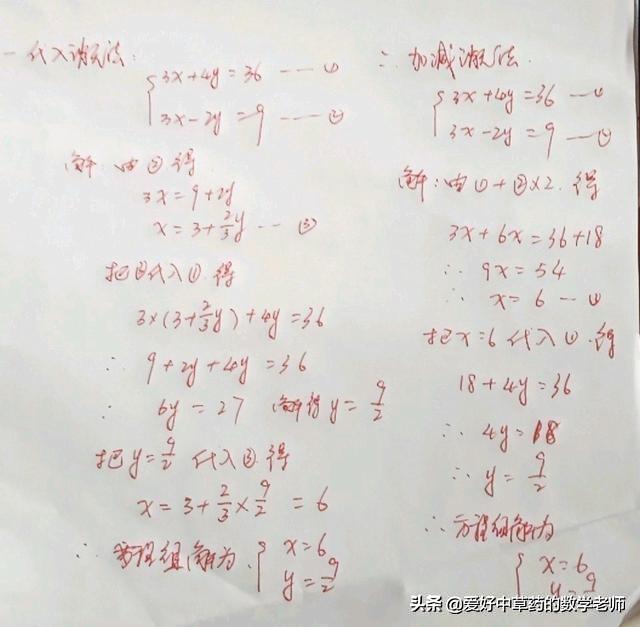 一 代入消元法:
3x+4y=36 ---- ①
3x-2y=9 ---- ②
解:由②得
3x=9+2y
x=3+\frac{2}{3}y --- ③
把③代入①.得
3×(3+\frac{2}{3}y)+4y=36
∴ 9+2y+4y=36
∴ 6y=27 解得y=\frac{9}{2}
把y=\frac{9}{2}代入③.得
x=3+\frac{2}{3}×\frac{9}{2}=6
∴方程组解为
x=6
y=\frac{9}{2}
二 加减消元法.
3x+4y=36 --①
3x-2y=9 --②
解:由①+②×2.得
3x+6x=36+18
∴ 9x=54
∴ x=6 --①
把x=6代入①.得
18+4y=36
∴ 4y=18
∴ y=\frac{9}{2}
∴方程组解为
x=6
y=\frac{9}{2}
头条 @爱好中草药的数学老师